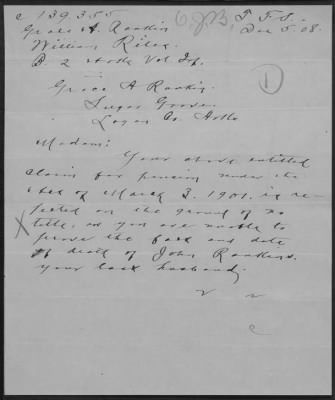 c 139.355
T. F. S.
Grace A. Rankin
Dec 5. 08.
William Riley
B. 2 Arks Vol Inf.
1
Grace A Rankin
Sugar Grove
Logan Co. Arks
Madam:
Your above entitled
claim for pension under the
Act of March 3. 1901. is re-
jected on the ground of no
title, as you are unable to
prove the fact and date
of death of John Rankins.
your last husband.